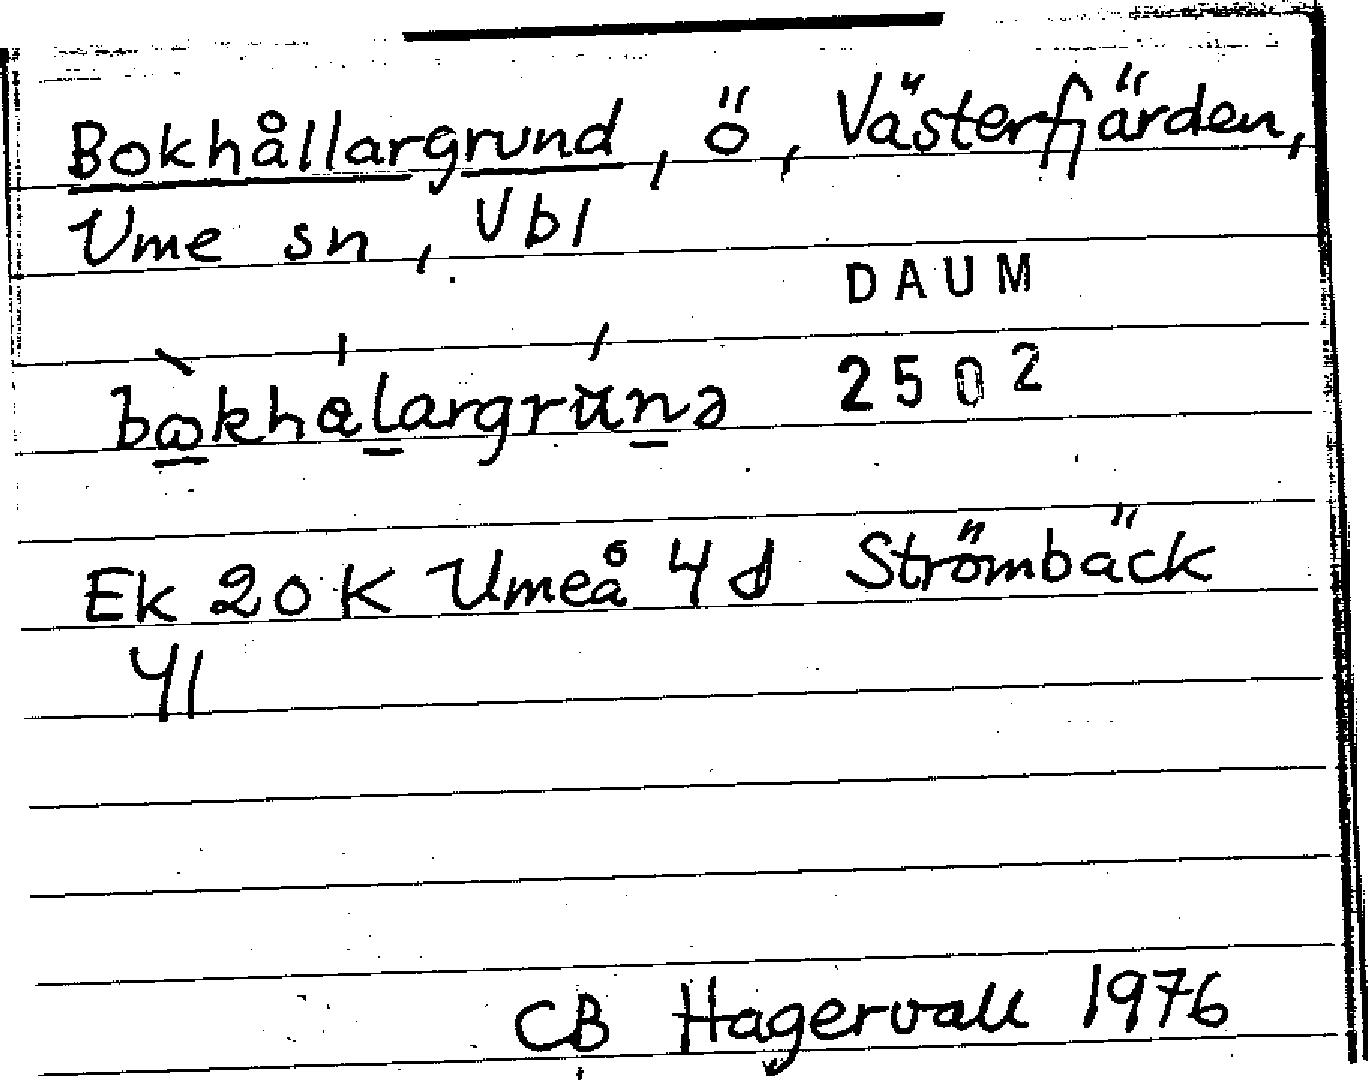 Bokhållargrund, ö, Västerfjärden,
Ume sn, Vbl
DAUM
2502
Ek 20 K Umeå 4 d Strömbäck
41
CB Hagervall 1976